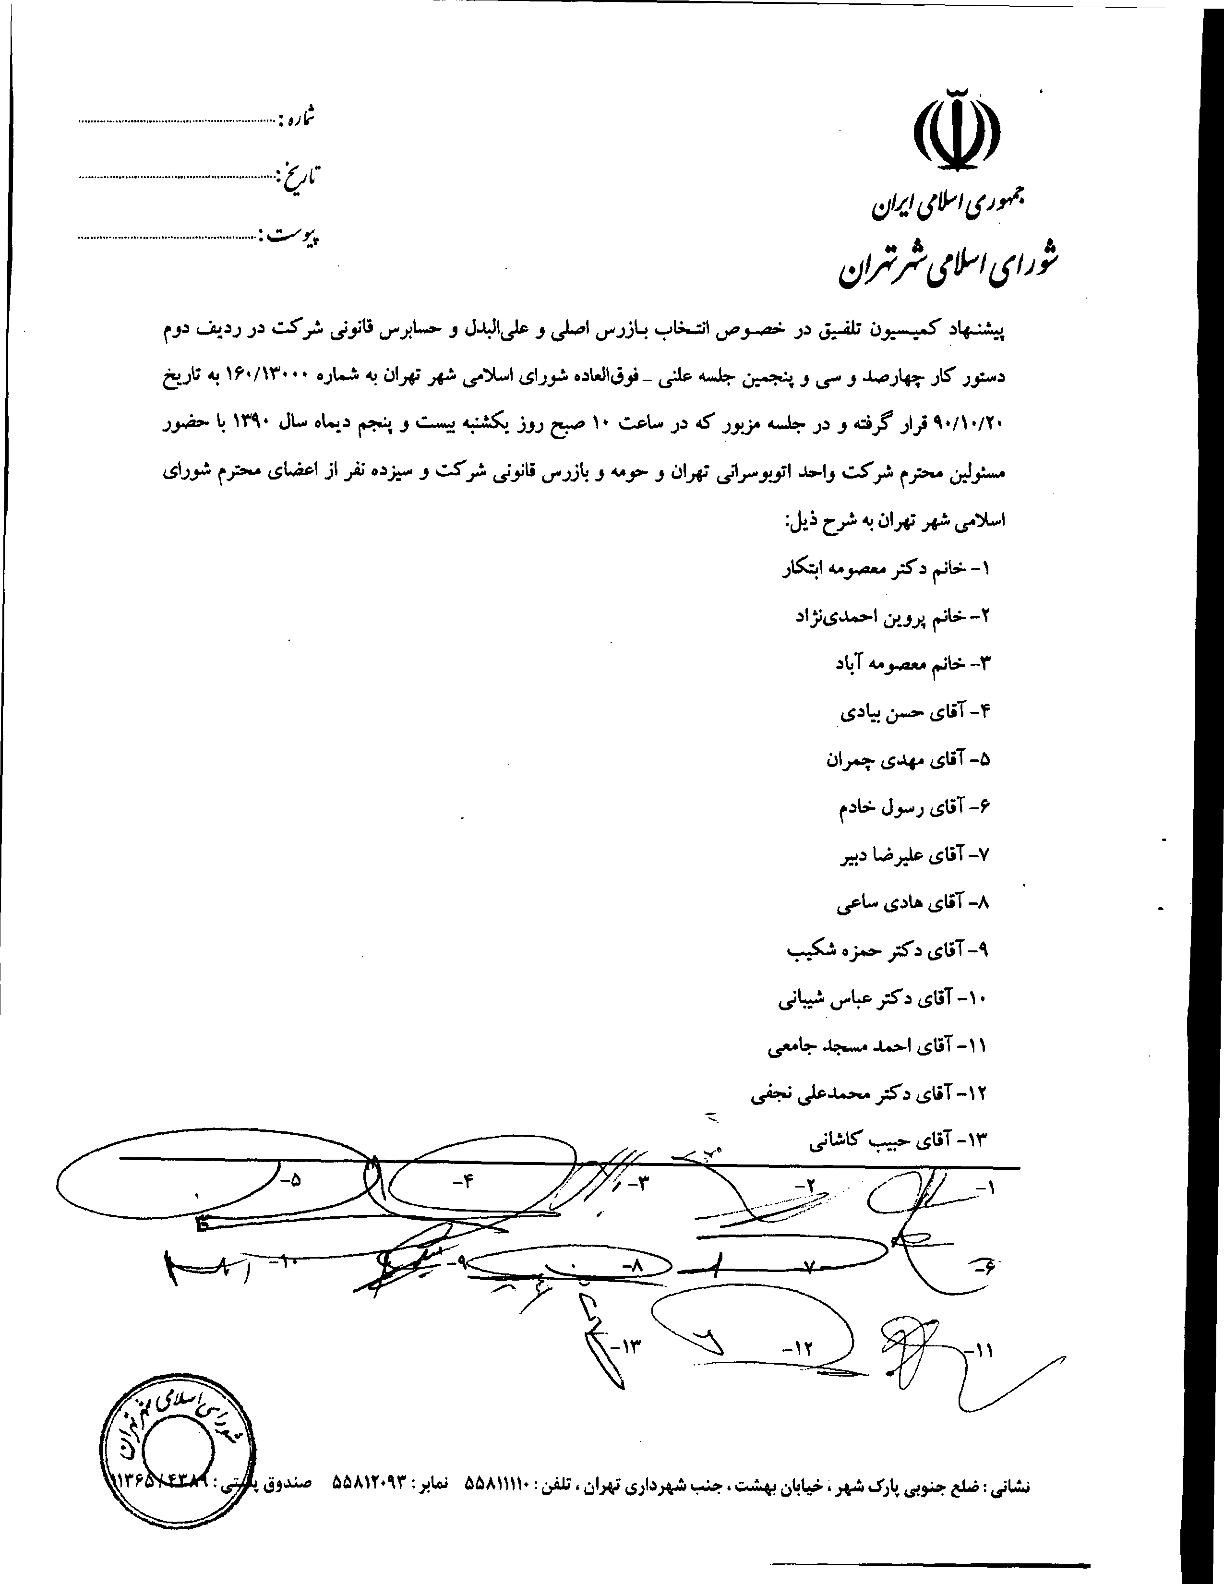 جمهوری اسلامی ایران
شورای اسلامی شهر تهران
شماره :
تاریخ :
پیوست :
پیشنهاد کمیسیون تلفیق در خصوص انتخاب بازرس اصلی و علی‌البدل و حسابرس قانونی شرکت در ردیف دوم
دستور کار چهارصد و سی و پنجمین جلسه علنی _ فوق‌العاده شورای اسلامی شهر تهران به شماره ۱۶۰/۱۳۰۰۰ به تاریخ
۹۰/۱۰/۲۰ قرار گرفته و در جلسه مزبور که در ساعت ۱۰ صبح روز یکشنبه بیست و پنجم دیماه سال ۱۳۹۰ با حضور
مسئولین محترم شرکت واحد اتوبوسرانی تهران و حومه و بازرس قانونی شرکت و سیزده نفر از اعضای محترم شورای
اسلامی شهر تهران به شرح ذیل:
۱- خانم دکتر معصومه ابتکار
۲- خانم پروین احمدی‌نژاد
۳- خانم معصومه آباد
۴- آقای حسن بیادی
۵- آقای مهدی چمران
۶- آقای رسول خادم
۷- آقای علیرضا دبیر
۸- آقای هادی ساعی
۹- آقای دکتر حمزه شکیب
۱۰- آقای دکتر عباس شیبانی
۱۱- آقای احمد مسجد جامعی
۱۲- آقای دکتر محمدعلی نجفی
۱۳- آقای حبیب کاشانی
۱- ۲- ۳- ۴- ۵-
۶- ۷- ۸- ۹- ۱۰-
۱۱- ۱۲- ۱۳-
شورای اسلامی شهر تهران
نشانی : ضلع جنوبی پارک شهر ، خیابان بهشت ، جنب شهرداری تهران ، تلفن : ۵۵۸۱۱۱۱۰ نمابر : ۵۵۸۱۲۰۹۳ صندوق پستی : ۱۱۳۶۵/۴۳۸۹